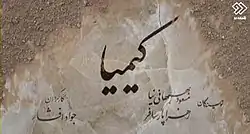 کیمیا
نویسندگان
مسعود بهبهانی نیا
زهرا پارسافر
کارگردان
جواد افشار